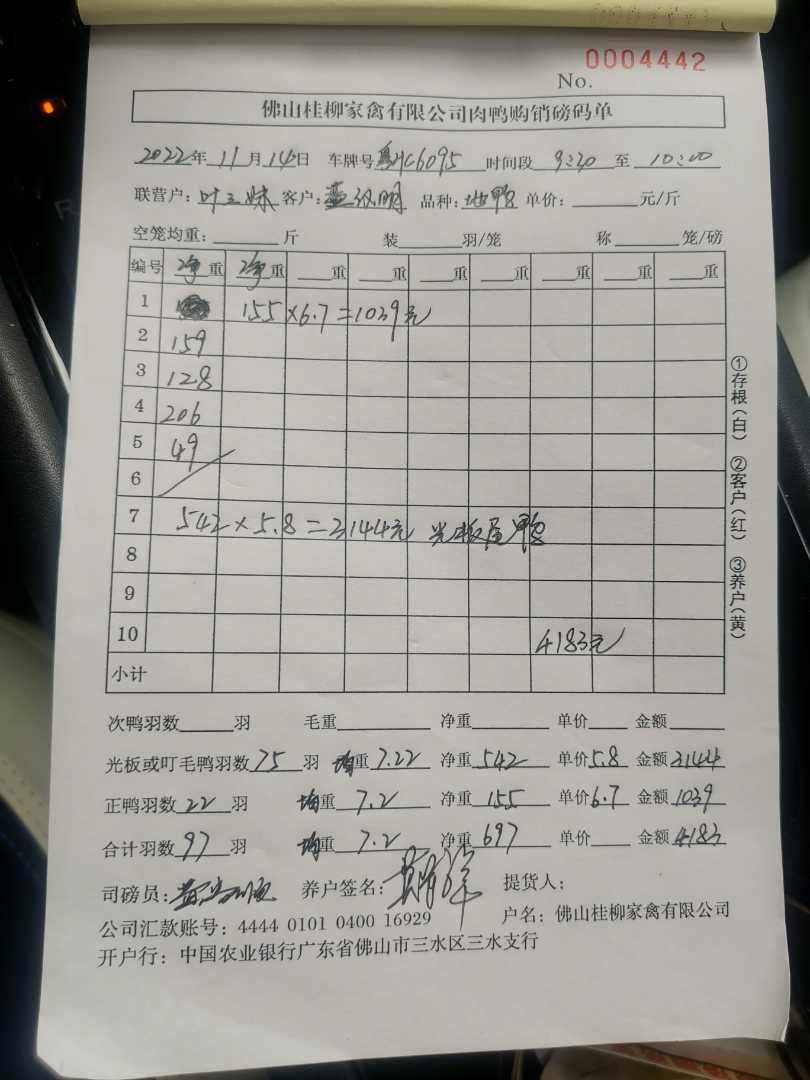 0004442
No.
佛山桂柳家禽有限公司肉鸭购销磅码单
2022年 11月 14日 车牌号 粤HC6095 时间段 9:30 至 10:00
联营户: 叶三妹 客户: 品种: 单价: 元/斤
空笼均重: 斤 装 羽/笼 称 笼/磅
编号 净重 净重 重 重 重 重 重 重 重
1 155×6.7=1039元
2 159
3 128
4 206
5 49
6
7 542×5.8=3144元 光板蛋鸭
8
9
10 4183元
小计
①存根(白) ②客户(红) ③养户(黄)
次鸭羽数 羽 毛重 净重 单价 金额
光板或叮毛鸭羽数 75 羽 均重 7.22 净重 542 单价 5.8 金额 3144
正鸭羽数 22 羽 均重 7.2 净重 155 单价 6.7 金额 1039
合计羽数 97 羽 均重 7.2 净重 697 单价 金额 4183
司磅员: 养户签名: 提货人:
公司汇款账号: 4444 0101 0400 16929 户名: 佛山桂柳家禽有限公司
开户行: 中国农业银行广东省佛山市三水区三水支行